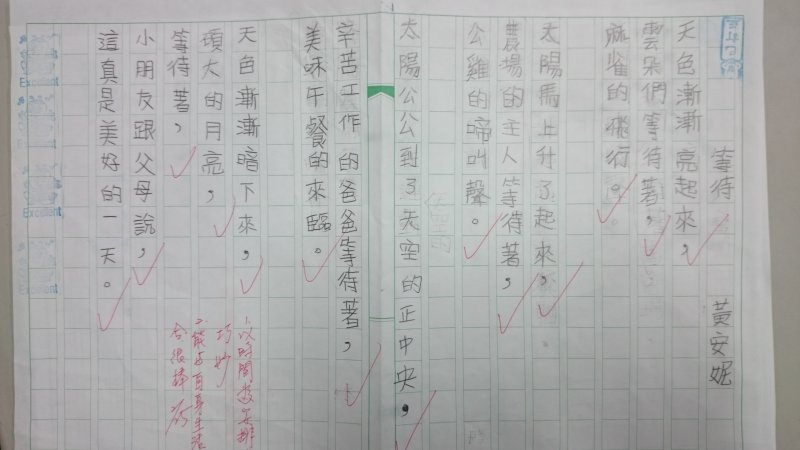 等待
黃安妮
天色漸漸亮起來，
雲朵們等待著，
麻雀的飛行。
太陽馬上升了起來，
農場的主人等待著，
公雞的啼叫聲。
太陽公公到了天空的正中央，
辛苦工作的爸爸等待著，
美味午餐的來臨。
天色漸漸暗下來，
頭大的月亮，
等待著，
小朋友跟父母說，
這真是美好的一天。
以時間為安排
巧妙
Excellent
Excellent
Excellent
Excellent